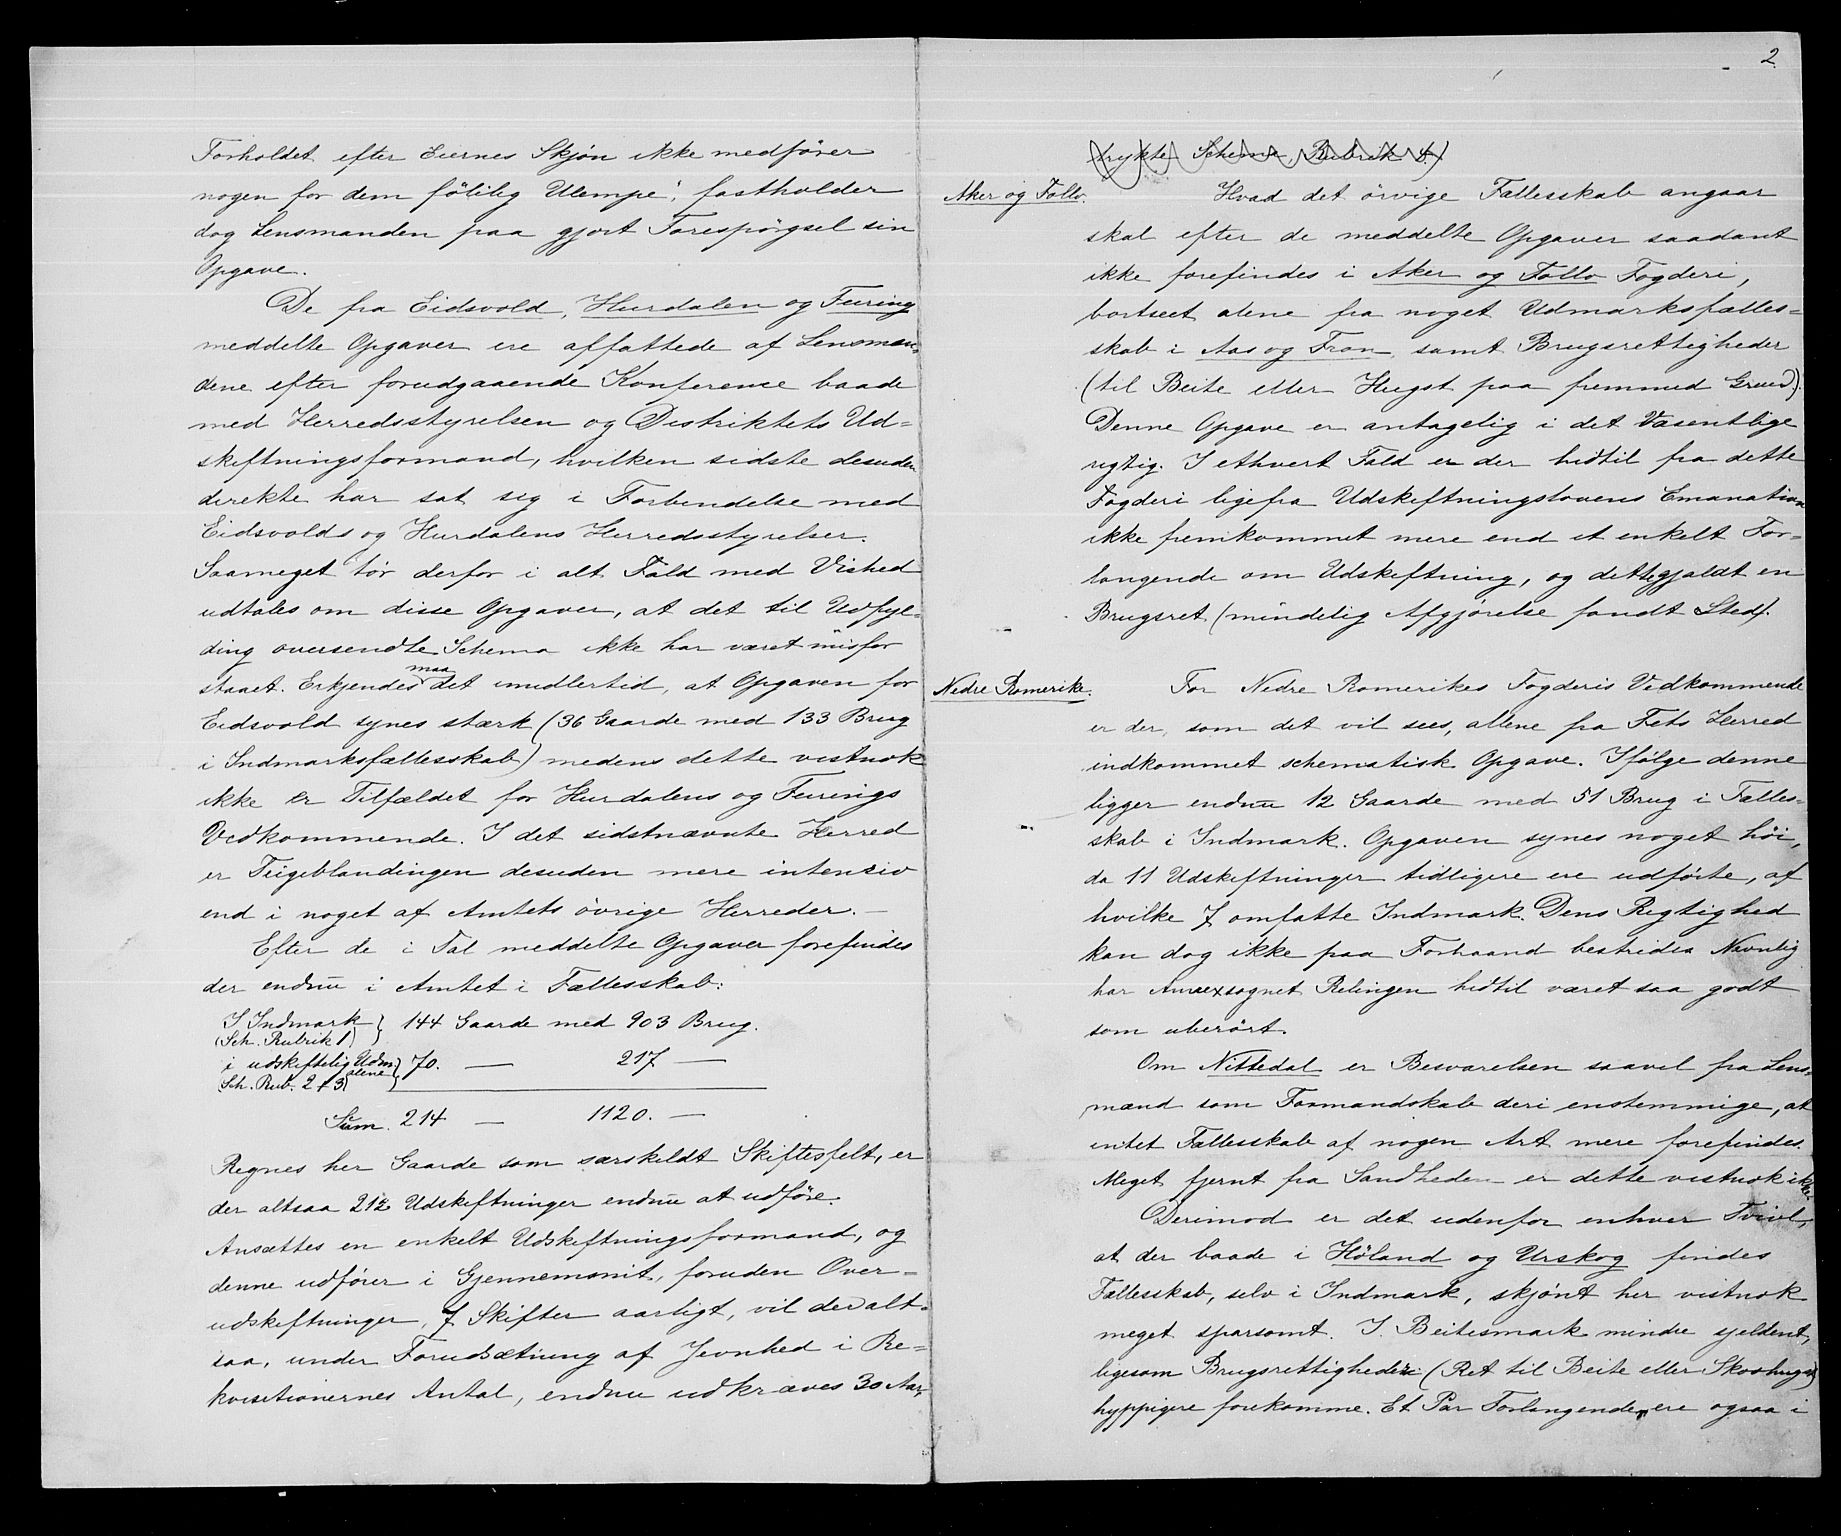 Forholdet efter Eiernes Skjøn ikke medfører
nogen for dem følelig Ulempe", fastholder
dog Lensmanden paa gjort Forespørgsel sin
Opgave.
De fra Eidsvold, Hurdalen og Feiring
meddelte Opgaver ere affattede af Lensmæn-
dene efter forudgaaende Konference baade
med Herredsstyrelsen og Distriktets Ud-
skiftningsformand, hvilken sidste desuden
direkte har sat sig i Forbindelse med
Eidsvolds og Hurdalens Herredsstyrelser.
Saameget tør derfor i alt Fald med Vished
udtales om disse Opgaver, at det til Udfyl-
ding oversendte Schema ikke har været misfor
staaet. Erkjendes maa det imidlertid, at Opgaven for
Eidsvold synes stærk (36 Gaarde med 133 Brug
i Indmarksfællesskab) medens dette vistnok
ikke er Tilfældet for Hurdalens og Feirings
Vedkommende. I det sidstnævnte Herred
er Teigeblandingen desuden mere intensiv
end i noget af Amtets øvrige Herreder. –
Efter de i Tal meddelte Opgaver forefindes
der endnu i Amtet i Fællesskab:
I Indmark } 144 Gaarde med 903 Brug.
(Sch. Rubrik 1)
i udskiftelig Udm. alene } 70. — 217 —
(Sch. Rub. 2 + 3)
Sum. 214 — 1120. —
Regnes her Gaarde som særskildt Skiftesfelt, er
der altsaa 212 Udskiftninger endnu at udføre.
Ansættes en enkelt Udskiftningsformand, og
denne udfører i Gjennemsnit, foruden Over-
udskiftninger, 7 Skifter aarligt, vil der alt-
saa, under Forudsætning af Jevnhed i Re-
kvisitionernes Antal, endnu udkræves 30 Aar,
2
trykte Schema, Rubrik 4.)
Aker og Follo.
Hvad det øvrige Fællesskab angaar
skal efter de meddelte Opgaver saadant
ikke forefindes i Aker og Follo Fogderi,
bortseet alene fra noget Udmarksfælles-
skab i Aas og Fron samt Brugsrettigheder
(til Beite eller Hugst paa fremmed Grund).
Denne Opgave er antagelig i det Væsentlige
rigtig. I ethvert Fald er der hidtil fra dette
Fogderi ligefra Udskiftningslovens Emanation
ikke fremkommet mere end et enkelt For-
langende om Udskiftning, og dette gjaldt en
Brugsret (mindelig Afgjørelse fandt Sted).
Nedre Romerike.
For Nedre Romerikes Fogderis Vedkommende
er der, som det vil sees, allene fra Fets Herred
indkommet schematisk Opgave. Ifølge denne
ligger endnu 12 Gaarde med 51 Brug i Fælles-
skab i Indmark. Opgaven synes noget høi,
da 11 Udskiftninger tidligere ere udførte, af
hvilke 7 omfatte Indmark. Dens Rigtighed
kan dog ikke paa Forhaand bestrides Navnlig
har Annexsognet Relingen hidtil været saa godt
som uberørt.
Om Nittedal er Besvarelsen saavel fra Lens-
mand som Formandskab deri enstemmige, at
intet Fællesskab af nogen Art mere forefindes.
Meget fjernt fra Sandheden er dette vistnok ikke.
Derimod er det udenfor enhver Tvivl,
at der baade i Høland og Urskog findes
Fællesskab, selv i Indmark, skjønt her vistnok
meget sparsomt. I Beitesmark mindre sjeldent,
ligesom Brugsrettigheder (Ret til Beite eller Skovhugst)
hyppigere forekomme. Et Par Forlangender ere ogsaa i